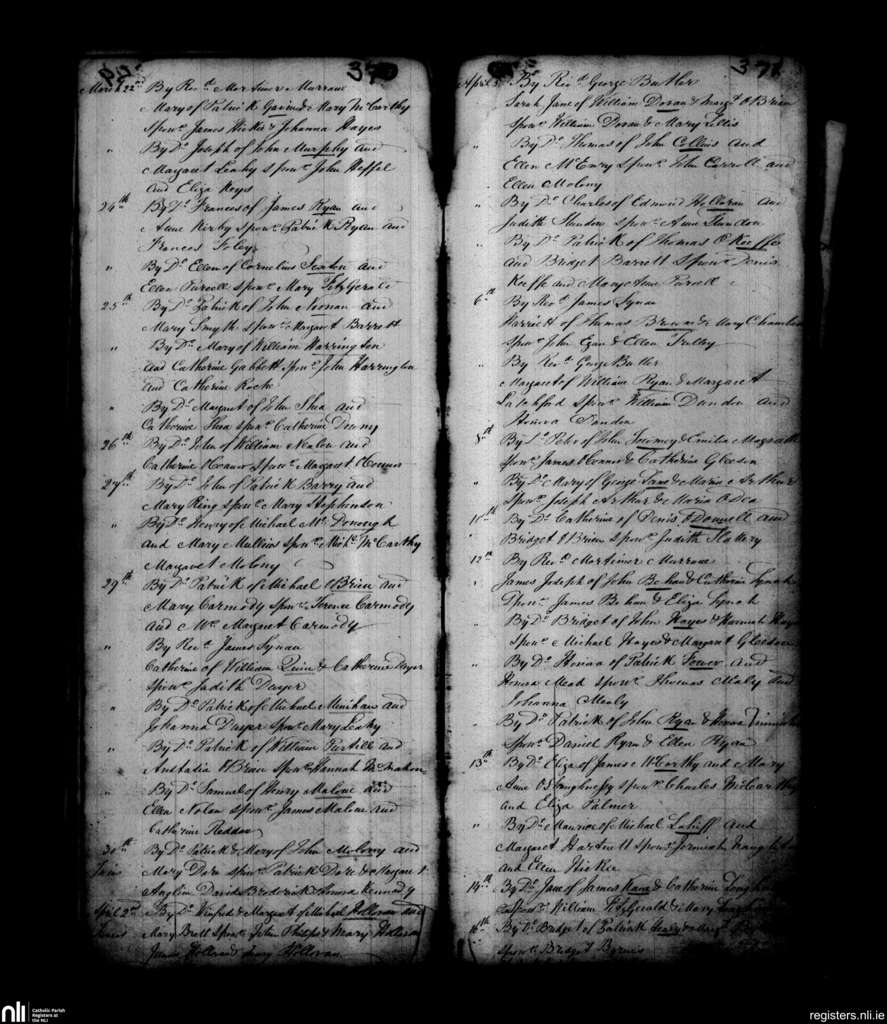 370
March 22nd By Revd. Mortimer Murrane
Mary of Patrick Gavin & Mary McCarthy
Sponr. James Hickie & Johanna Hayes
" By Do. Joseph of John Murphy and
Margaret Leahy Sponr. John Heffel
and Eliza Keys
24th By Do. Frances of James Ryan and
Anne Kirby Sponr. Patrick Ryan and
Frances Foley
" By Do. Ellen of Cornelius Sexton and
Ellen Purcell Sponr. Mary FitzGerald
25th By Do. Patrick of John Noonan and
Mary Smyth Sponr. Margaret Barrett
" By Do. Mary of William Harrington
and Catherine Gabbett Sponr. John Harrington
and Catherine Roche
" By Do. Margaret of John Shea and
Catherine Shea Sponr. Catherine Downy
26th By Do. John of William Nealon and
Catherine OConnor Sponr. Margaret OConnor
27th By Do. John of Patrick Barry and
Mary Ring Sponr. Mary Stephenson
" By Do. Henry of Michael Mc Donough
and Mary Mullins Sponr. Michl. McCarthy
Margaret Molony
29th By Do. Patrick of Michael OBrien and
Mary Carmody Sponr. Terence Carmody
and Mrs. Margaret Carmody
" By Revd. James Synan
Catherine of William Quin & Catherine Dwyer
Sponr. Judith Dwyer
" By Do. Patrick of Michael Minihan and
Johanna Dwyer Sponr. Mary Leahy
" By Do. Patrick of William Purtill and
Anstatia OBrien Sponr. Hannah McMahon
" By Do. Samuel of Henry Malone and
Ellen Nolan Sponr. James Malone and
Catherine Reddan
30th By Do. Patrick & Mary of John Molony and
Twins Mary Dore Sponr. Patrick Dore & Margaret
Anglin David Broderick & Honora Kennedy
April 2nd By Do. Winifred & Margaret of Michael Holloran and
Twins Mary Brett Sponr. John Philips & Mary Holloran
James Holloran & Holloran
371
April 5th By Revd. George Butler
Sarah Jane of William Doran & Margt. OBrien
Sponr. William Doran & Mary Ellis
" By Do. Thomas of John Collins and
Ellen McEnry Sponr. John Carroll and
Ellen Molony
" By Do. Charles of Edmund Holloran and
Judith Slundon Sponr. Anne Slundon
" By Do. Patrick of Thomas O'Keeffe
and Bridget Barrott Sponr. Denis
Keeffe and Mary Anne Purcell
6th By Revd. James Synan
Harriett of Thomas Brown & Mary Chamber
Sponr. John Egan & Ellen
" By Revd. George Butler
Margaret of William Ryan & Margaret
Sponr. William Dundon and
Honora Dundon
8th By Do. John of John Twomey & Emilia Magrath
Sponr. James OConnor & Catherine Gleeson
" By Do. Mary of George & Maria Arthur
Sponr. Joseph Arthur & Maria ODea
11th By Do. Catherine of Denis ODonnell and
Bridget OBrien Sponr. Judith Slattery
12th By Revd. Mortimer Murrane
James Joseph of John Behan & Catherine Lynch
Sponr. James Behan & Eliza Lynch
" By Do. Bridget of John Hayes & Hannah Hayes
Sponr. Michael Hayes & Margaret Gleeson
" By Do. Honora of Patrick Power and
Honora Meak Sponr. Thomas Mealy and
Johanna Mealy
" By Do. Patrick of John Ryan & Honora
Sponr. Daniel Ryan & Ellen Ryan
13th By Do. Eliza of James McCarthy and Mary
Anne OShaughnessy Sponr. Charles McCarthy
and Eliza Palmer
" By Do. Maurice of Michael Lahiff and
Margaret Hartnett Sponr. Jeremiah Naughton
and Ellen Hickie
14th By Do. Jane of James Kane & Catherine
Sponr. William FitzGerald & Mary
16th By Do. Bridget of Patrick &
Sponr. Bridget Byrnes
nli
Catholic Parish
Registers at
the NLI
registers.nli.ie